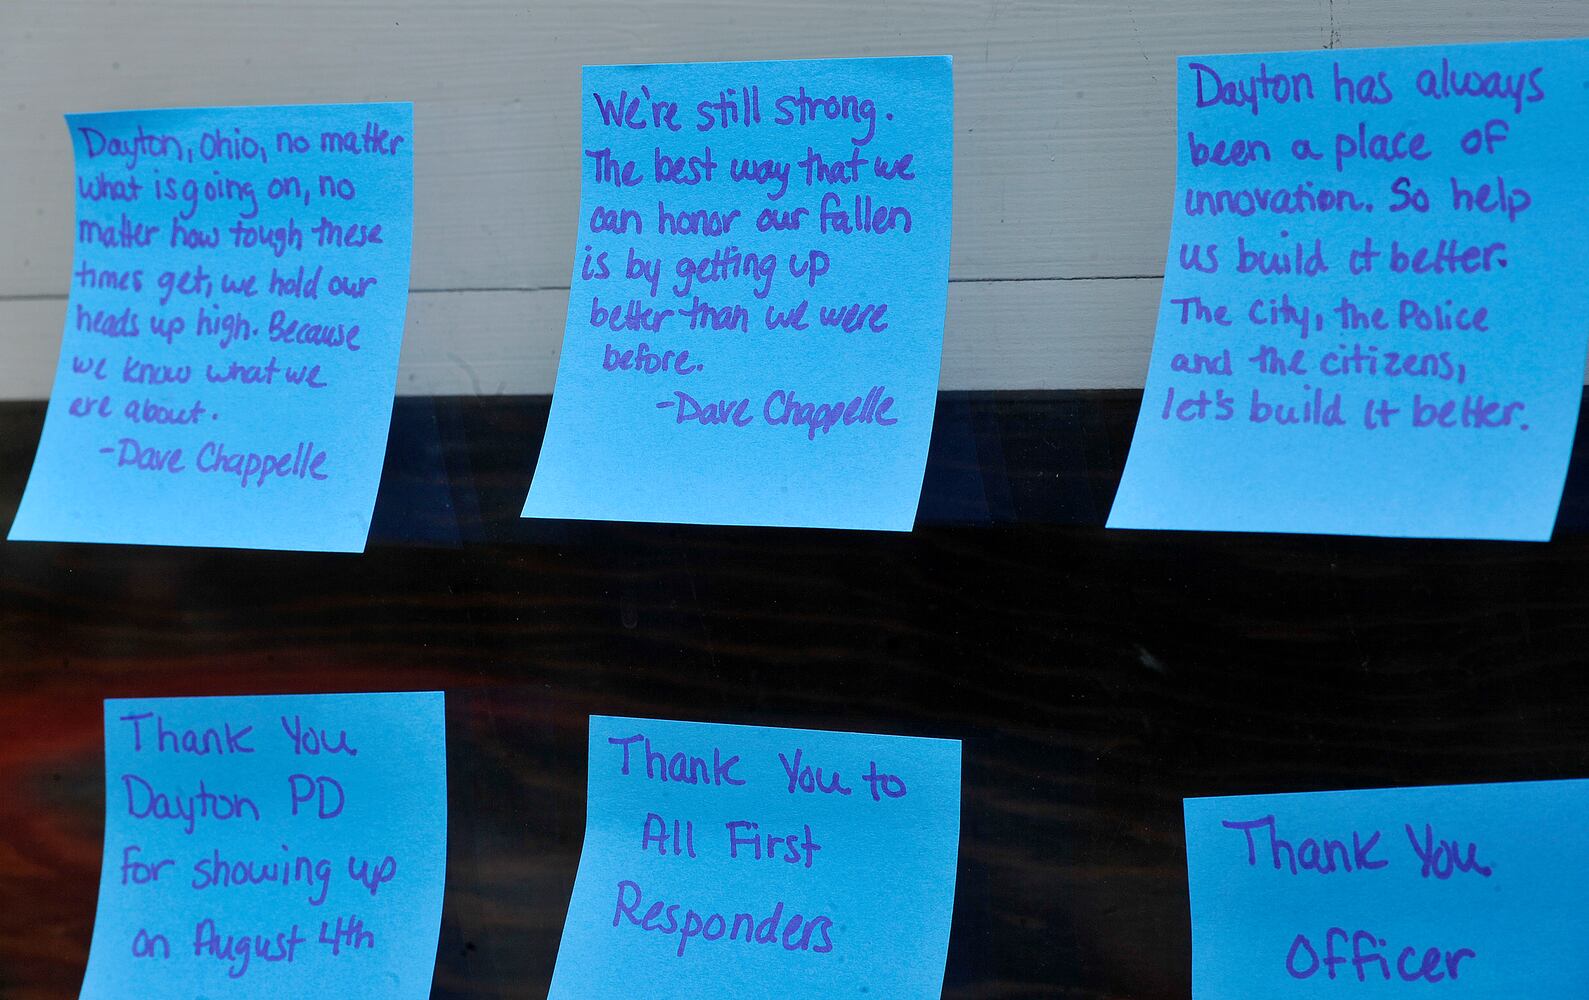 Dayton, Ohio, no matter
what is going on, no
matter how tough these
times get, we hold our
heads up high. Because
we know what we
are about.
-Dave Chappelle
We're still strong.
The best way that we
can honor our fallen
is by getting up
better than we were
before.
-Dave Chappelle
Dayton has always
been a place of
innovation. So help
us build it better.
The City, the Police
and the citizens,
let's build it better.
Thank You
Dayton PD
for showing up
on August 4th
Thank You to
All First
Responders
Thank You
Officer